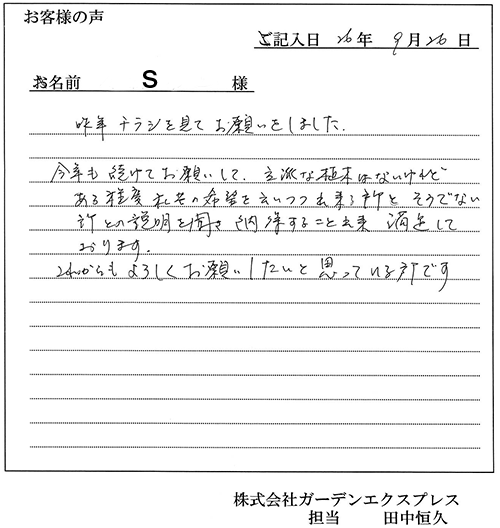 お客様の声
ご記入日 26年 9月26日
お名前 S 様
昨年 チラシを見て お願いをしました.
今年も 続けてお願いして. 立派な植木はないけれど
ある程度 私共の希望を云いつつ出来る所と そうでない
所との説明を聞き 納得すること出来 満足して
おります.
これからも よろしくお願いしたいと思っている所です
株式会社ガーデンエクスプレス
担当 田中恒久